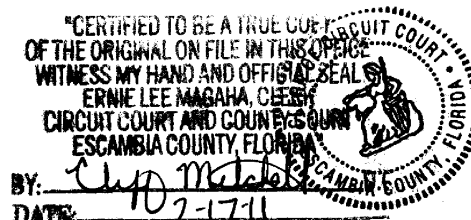 "CERTIFIED TO BE A TRUE COPY
OF THE ORIGINAL ON FILE IN THIS OFFICE
WITNESS MY HAND AND OFFICIAL SEAL
ERNIE LEE MAGAHA, CLERK
CIRCUIT COURT AND COUNTY COURT
ESCAMBIA COUNTY, FLORIDA"
BY: D.C.
DATE: 7-17-11
CIRCUIT COURT
ESCAMBIA COUNTY, FLORIDA